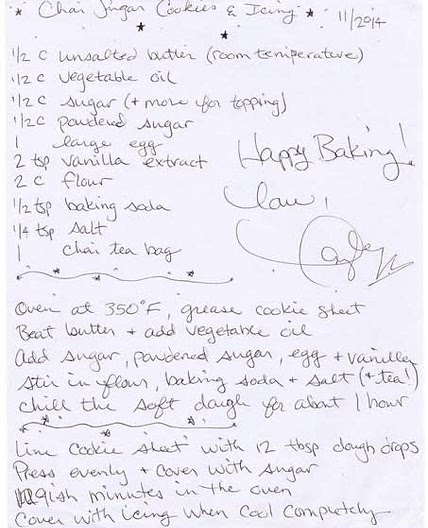 Chai Sugar Cookies & Icing 11/2014
1/2 c unsalted butter (room temperature)
1/2 c vegetable oil
1/2 c sugar (+ more for topping)
1/2 c powdered sugar
1 large egg
2 tsp vanilla extract
2 c flour
1/2 tsp baking soda
1/4 tsp salt
1 chai tea bag
Happy Baking!
Love,
Oven at 350°F, grease cookie sheet
Beat butter + add vegetable oil
Add sugar, powdered sugar, egg + vanilla
Stir in flour, baking soda + salt (+ tea!)
Chill the soft dough for about 1 hour
Line cookie sheet with 12 tbsp dough drops
Press evenly + cover with sugar
9ish minutes in the oven
Cover with icing when cool completely